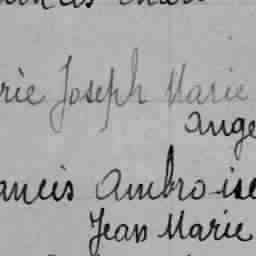 rie Joseph Marie
ange
ancis Ambroise
Jean Marie